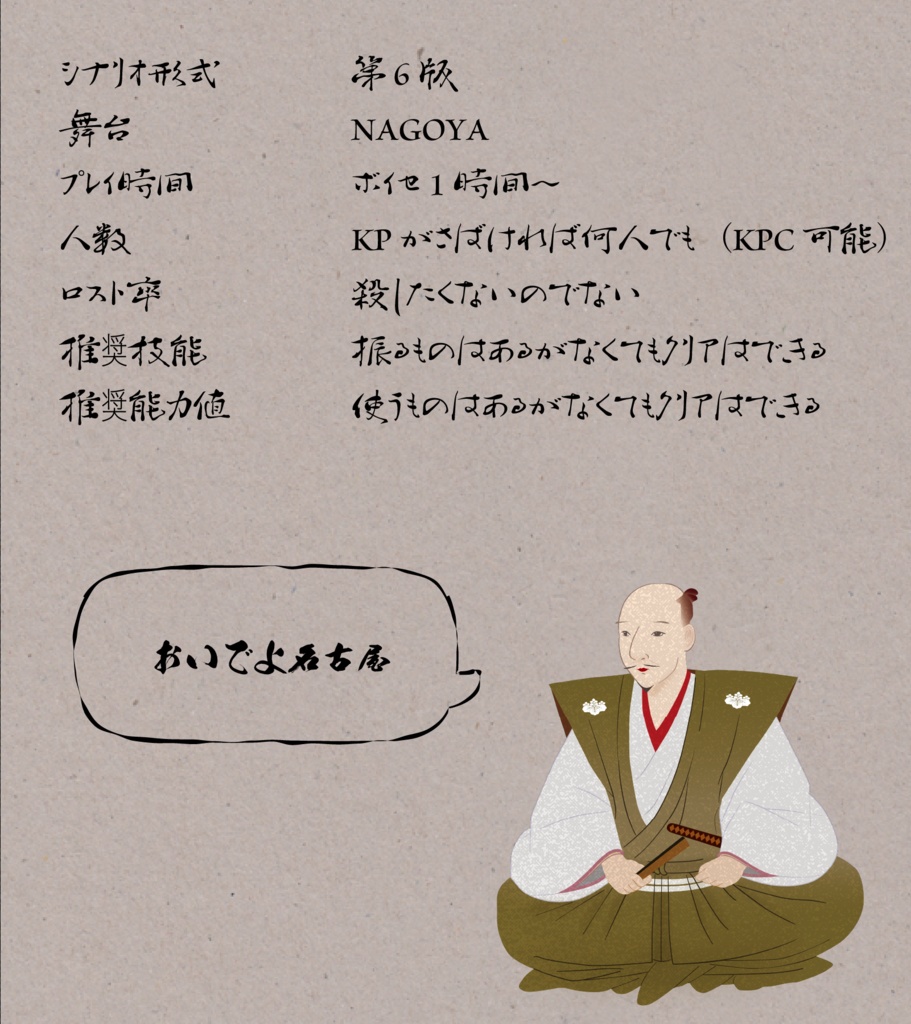 シナリオ形式 第6版
舞台 NAGOYA
プレイ時間 ボイセ1時間～
人数 KPがさばければ何人でも（KPC可能）
ロスト率 殺したくないのでない
推奨技能 振るものはあるがなくてもクリアはできる
推奨能力値 使うものはあるがなくてもクリアはできる
おいでよ名古屋